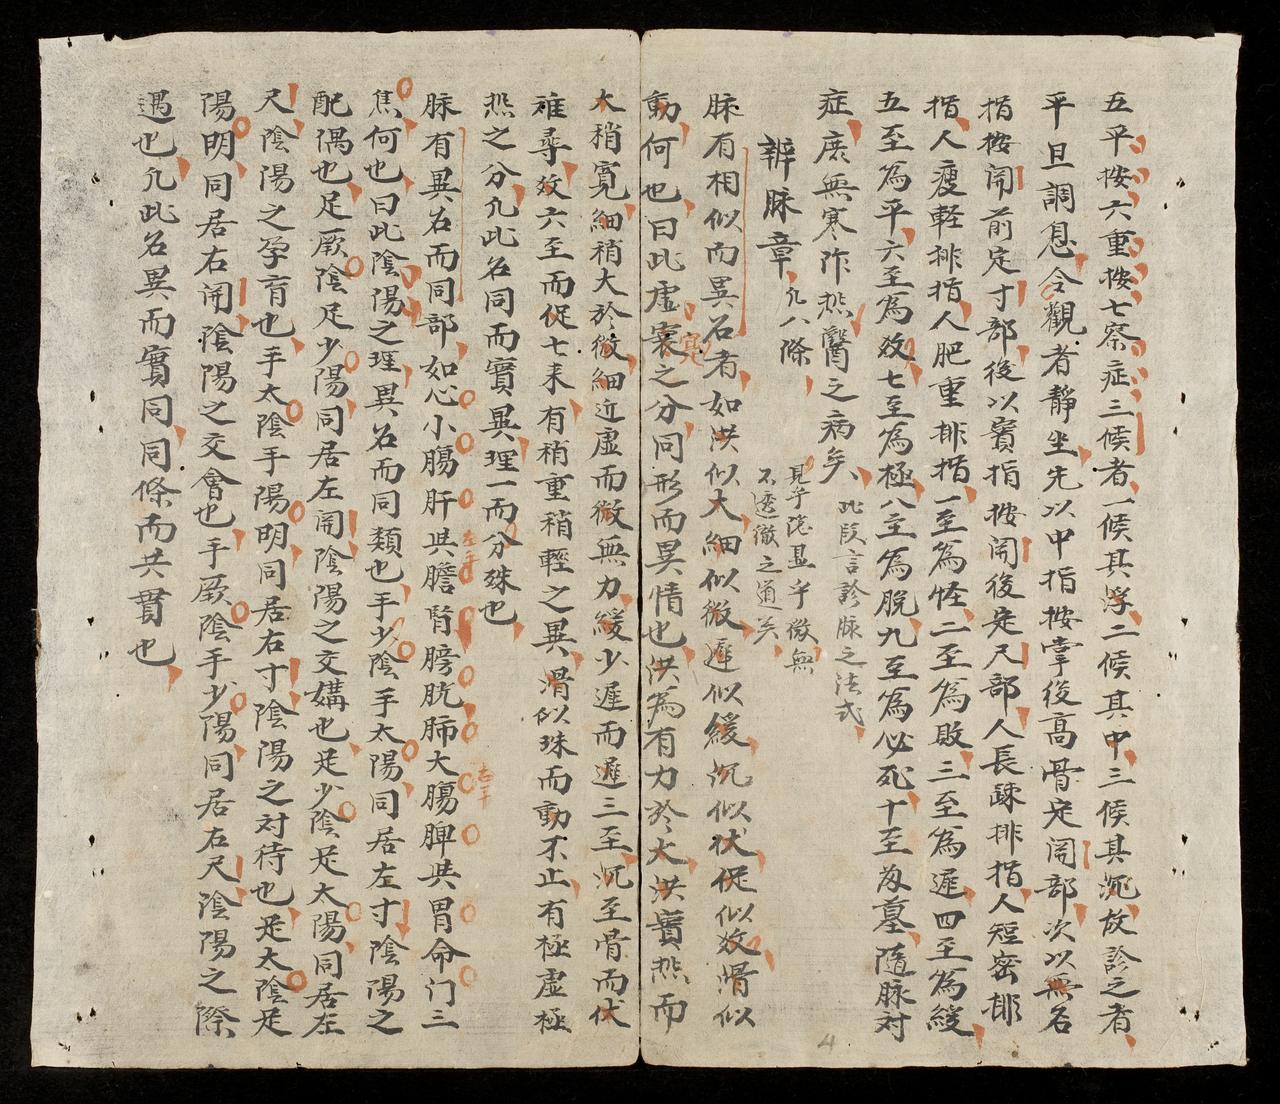 五平按六重按七察症三候者一候其浮二候其中三候其沉故診之者
平旦調息令觀者靜坐先以中指按掌後高骨定関部次以無名
指按関前定寸部後以賓指按関後定尺部人長踈排指人短密排
指人瘦軽排指人肥重排指一至為怪二至為敗三至為遲四至為緩
五至為平六至為效七至為極八至為脱九至為必死十至為墓隨脉対
症庶無寒作热醫之病矣 此段言診脉之法式
見乎隐显乎微無
不透徹之道矣
辨脉章 凡八條
脉有相似而異名者如洪似大細似微遲似緩沉似伏促似效滑似
動何也曰此虚寔之分同形而異情也洪為有力於大洪實热而
大稍寛細稍大於微細近虚而微無力緩少遲而遲三至沉至骨而伏
难尋效六至而促七来有稍重稍輕之異滑似珠而動不止有極虚極
热之分凡此名同而實異理一而分殊也
脉有異名而同部如心小腸肝共膽腎膀胱肺大腸脾共胃命门三
左手
右手
焦何也曰此陰陽之理異名而同類也手少陰手太陽同居左寸陰陽之
配偶也足厥陰足少陽同居左関陰陽之交媾也足少陰足太陽同居左
尺陰陽之孕育也手太陰手陽明同居右寸陰陽之対待也足太陰足
陽明同居右関陰陽之交會也手厥陰手少陽同居右尺陰陽之際
遇也凡此名異而實同同條而共貫也
4